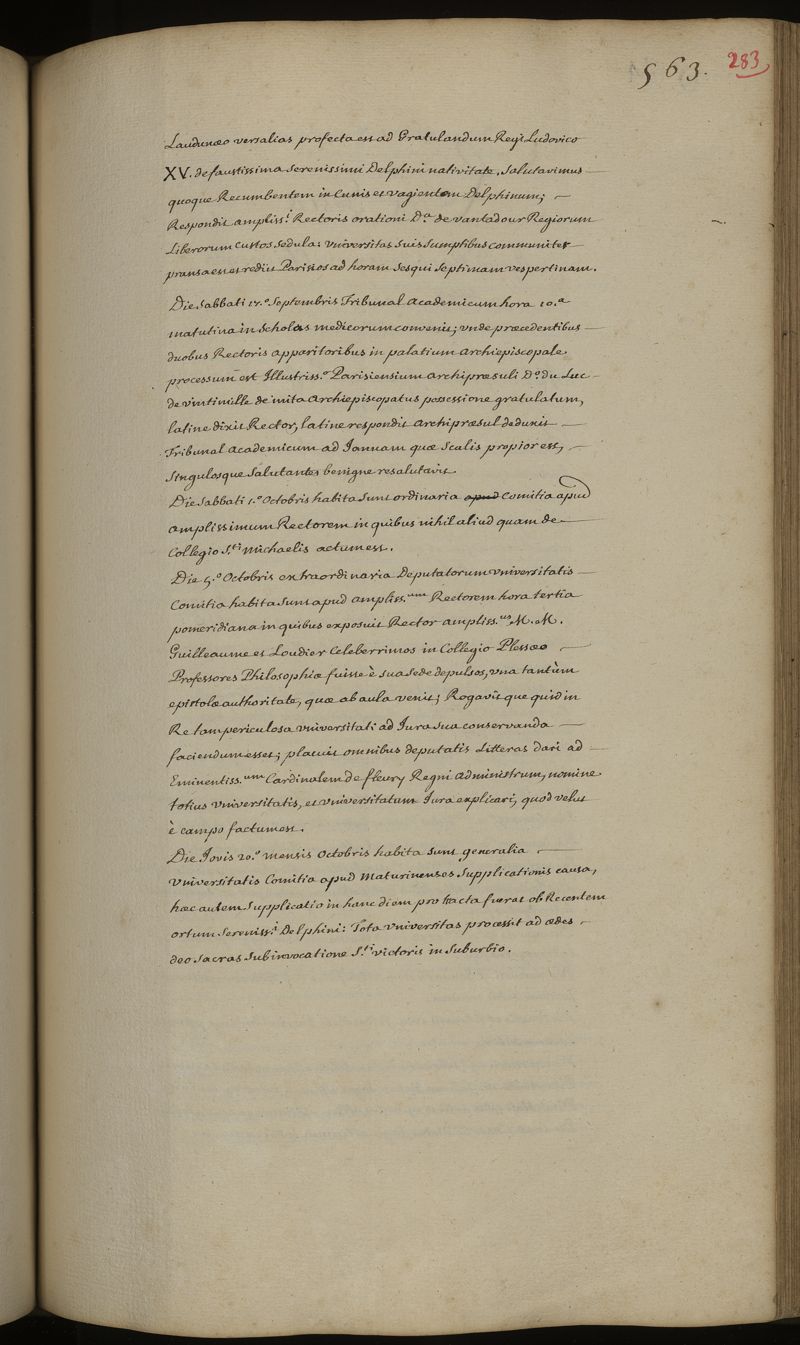 563.
283
Laudunæo versalias profecta est ad Gratulandum Regi Ludovico
XV. de faustissima serenissimi Delphini nativitate, salutavimus
quoque Recumbentem in Cunis et vagientem Delphinum;
Respondit ampliss.i Rectoris orationi D.a de vantadour Regiorum
Liberorum Custos sedula: universitas suis sumptibus communiter
pransa est et rediit Parisios ad horam sesqui septimam vespertinam.
Die Sabbati 17.o Septembris Tribunal academicum hora 10.a
matutina in Scholas medicorum convenit; unde præcedentibus
duobus Rectoris apparitoribus in palatium archiepiscopale
processum est Illustriss.o Parisiensium archipræsuli D.o du Luc
de vintimille de inita archiepiscopatus possessione gratulatum,
latine dixit Rector, latine respondit archipræsul deduxit
Tribunal academicum ad Ianuam quæ scalis propior est,
singulosque salutantes benigne resalutavit.
Die Sabbati 1.o Octobris habita sunt ordinaria apud Comitia apud
amplissimum Rectorem in quibus nihil aliud quam de
Collegio S.ti Michaelis actum est.
Die 5.o Octobris extraordinaria Deputatorum universitatis
Comitia habita sunt apud ampliss.um Rectorem hora tertia
pomeridiana in quibus exposuit Rector ampliss.us M. M.
Guilleaume et Loudier Celeberrimos in Collegio Plessæo
Professores Philosophiæ fuisse è sua sede depulsos, una tantùm
epistolæ authoritate, quæ ab aula venit; Rogavitque quid in
Re tam periculosa universitati ad Iura sua conservanda
faciendum esset; placuit omnibus deputatis Litteras dari ad
Eminentiss.um Cardinalem de fleury Regni administrum, nomine
totius universitatis, et universitatum Iura explicari, quod velut
è campo factum est.
Die Iovis 20.o mensis Octobris habita sunt generalia
universitatis Comitia apud Maturinenses supplicationis causa,
hæc autem supplicatio in hanc diem protracta fuerat ob Recentem
ortum sereniss.i Delphini: Tota universitas processit ad ædes
deo sacras sub invocatione S.ti victoris in suburbio.